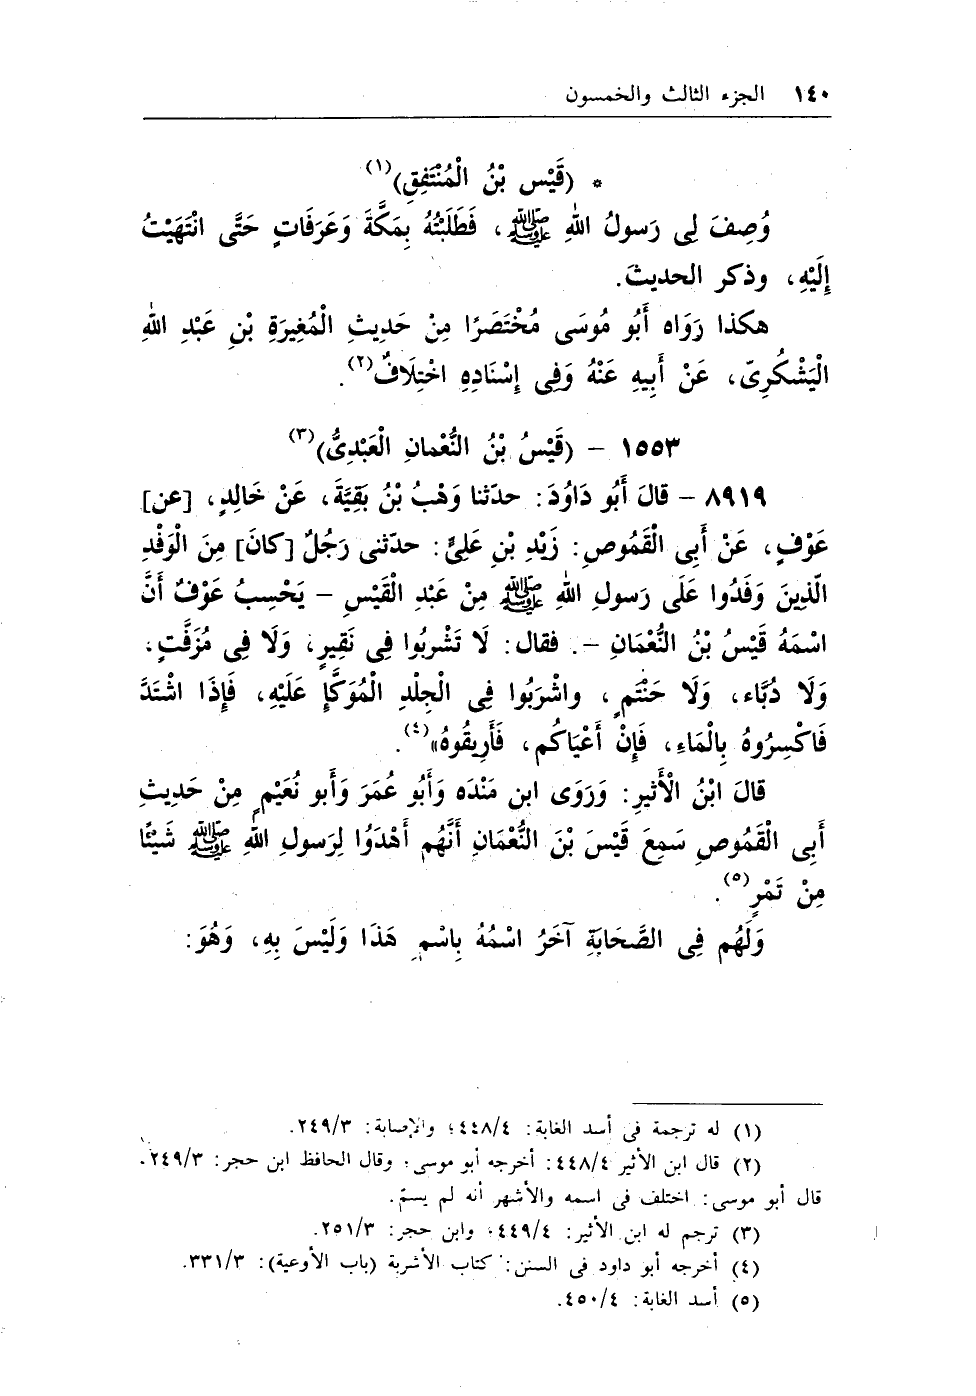 ١٤٠ الجزء الثالث والخمسون
* (قَيْس بْنُ الْمُنْتَفِقِ)(١)
وُصِفَ لِى رَسولُ اللهِ ﷺ، فَطَلَبْتُهُ بِمَكَّةَ وَعَرَفَاتٍ حَتَّى انْتَهَيْتُ
إِلَيْهِ، وذكر الحديثَ.
هكذا رَوَاه أَبُو مُوسَى مُخْتَصَرًا مِنْ حَدِيثِ الْمُغِيرَةِ بْنِ عَبْدِ اللهِ
الْيَشْكُرِىّ، عَنْ أَبِيهِ عَنْهُ وَفِى إِسْنَادِهِ اخْتِلَافٌ(٢).
١٥٥٣ – (قَيْسُ بْنُ النُّعْمانِ الْعَبْدِىُّ)(٣)
٨٩١٩ – قالَ أَبُو دَاوُدَ: حدّثنا وَهْبُ بْنُ بَقِيَّةَ، عَنْ خَالِدٍ، [عن]
عَوْفٍ، عَنْ أَبِى الْقَمُوصِ: زَيْدِ بْنِ عَلِىٍّ: حدّثنى رَجُلٌ [كانَ] مِنَ الْوَفْدِ
الّذِينَ وَفَدُوا عَلَى رَسولِ اللهِ ﷺ مِنْ عَبْدِ الْقَيْسِ – يَحْسِبُ عَوْفٌ أَنَّ
اسْمَهُ قَيْسُ بْنُ النُّعْمَانِ –. فقال: لَا تَشْرِبُوا فِى نَقِيرٍ، وَلَا فِى مُزَفَّتٍ،
وَلَا دُبَّاء، وَلَا حَنْتَمٍ، واشْرَبُوا فِى الْجِلْدِ الْمُوَكَّإِ عَلَيْهِ، فَإِذَا اشْتَدَّ
فَاكْسِرُوهُ بِالْمَاءِ، فَإِنْ أَعْيَاكُم، فَأَرِيقُوهُ»(٤).
قالَ ابْنُ الْأَثيرِ: وَرَوَى ابن مَنْدَه وَأَبُو عُمَرَ وَأَبو نُعَيْمٍ مِنْ حَدِيثِ
أَبِى الْقَمُوصِ سَمِعَ قَيْسَ بْنَ النُّعْمَانِ أَنَّهُم أَهْدَوُا لِرَسولِ اللهِ ﷺ شَيْئًا
مِنْ تَمْرٍ(٥).
وَلَهُم فِى الصَّحَابَةِ آخَرُ اسْمُهُ بِاسْمِ هَذَا وَلَيْسَ بِهِ، وَهُوَ:
(١) له ترجمة فى أسد الغابة: ٤٤٨/٤؛ والإصابة: ٢٤٩/٣.
(٢) قال ابن الأثير ٤٤٨/٤: أخرجه أبو موسى، وقال الحافظ ابن حجر: ٢٤٩/٣.
قال أبو موسى: اختلف فى اسمه والأشهر أنه لم يسمّ.
(٣) ترجم له ابن الأثير: ٤٤٩/٤، وابن حجر: ٢٥١/٣.
(٤) أخرجه أبو داود فى السنن: كتاب الأشربة (باب الأوعية): ٣٣١/٣.
(٥) أسد الغابة: ٤٥٠/٤.